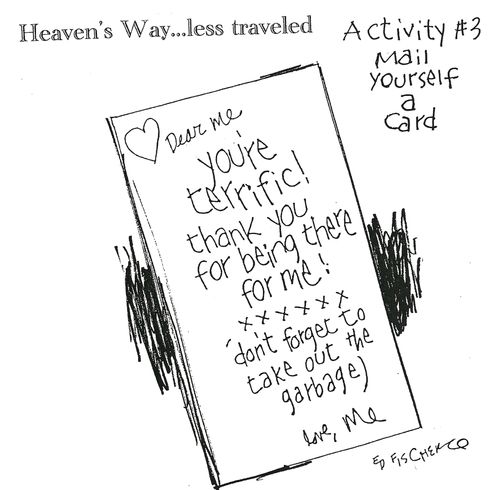 Heaven's Way...less traveled
Activity #3
Mail
yourself
a
card
Dear me
you're
terrific!
thank you
for being there
for me!
xxxxxx
(don't forget to
take out the
garbage)
love, Me
ED FISCHER